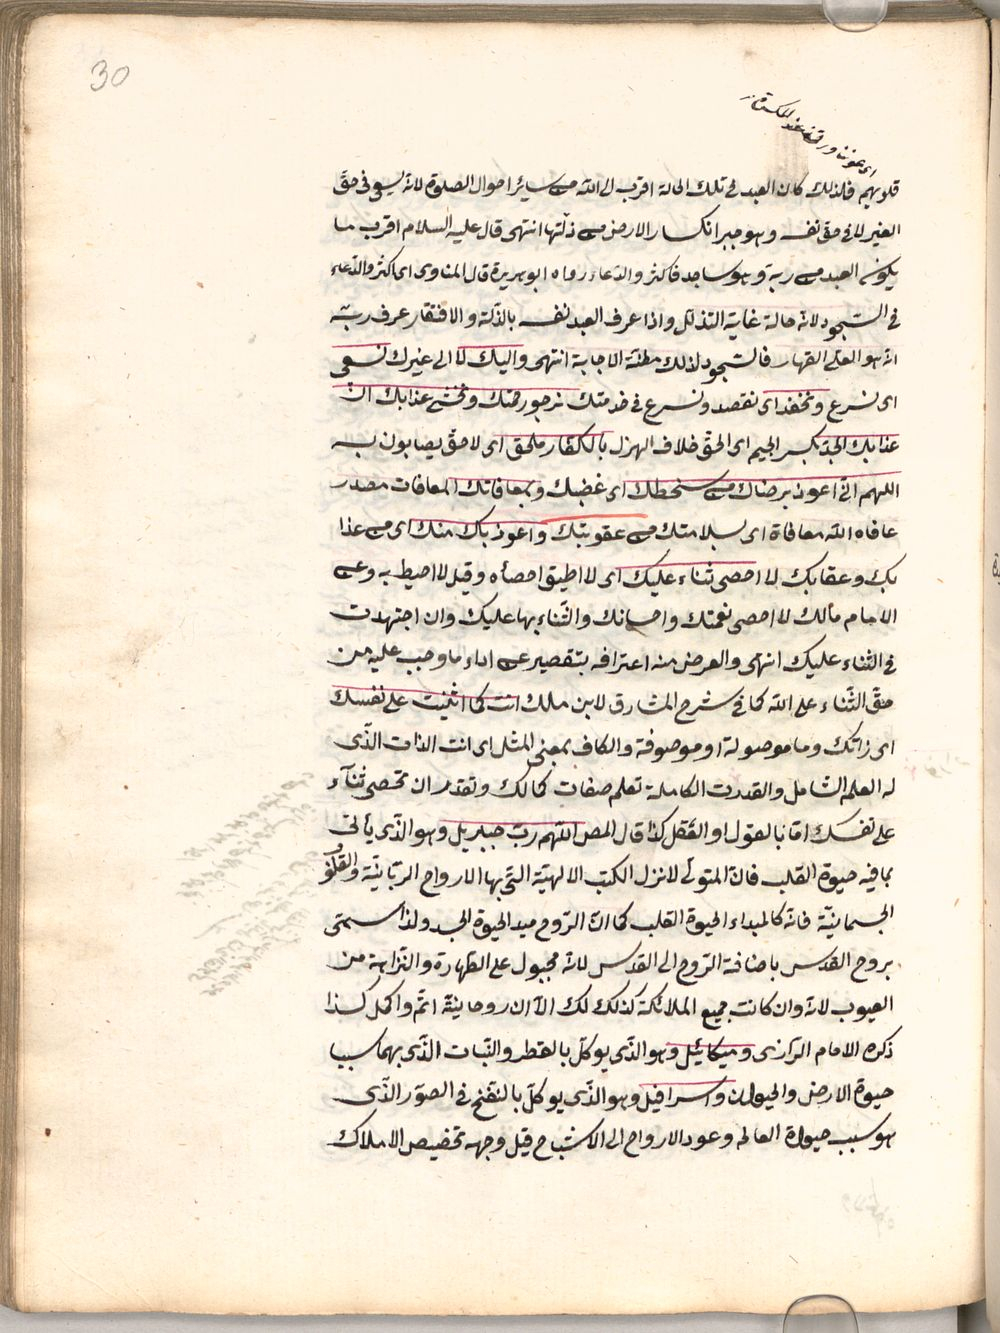 30
قلوبهم فلذلك كان العبد فى تلك الحالة اقرب الى الله من سائر احوال الصلوة لانه يسعى فى حقّ
الغير لا فى حقّ نفسه وهو جبر انكسار الارض من ذلّتها انتهى قال عليه السلام اقرب ما
يكون العبد من ربّه وهو ساجد فاكثروا الدعاء رواه ابو هريرة قال المناوى اى اكثروا الدّعاء
فى السّجود لانه حالة غاية التذلّل واذا عرف العبد نفسه بالذّلة والافتقار عرف ربّه
انه هو العلى القهار فالسّجود لذلك مظنّة الاجابة انتهى واليك لا الى غيرك نسعى
اى نسرع ونحفد اى نقصد ونسرع فى خدمتك نرجو رحمتك ونخشى عذابك انّ
عذابك الجدّ بكسر الجيم اى الحقّ خلاف الهزل بالكفّار ملحق اى لاحق يصابون به
اللهم انّى اعوذ برضاك من سخطك اى غضبك وبمعافاتك المعافات مصدر
عافاه الله معافاة اى بسلامتك من عقوبتك واعوذ بك منك اى من عذا
بك وعقابك لا احصى ثناء عليك اى لا اطيق احصاه وقيل لا احيط به وعن
الامام مالك لا احصى نعمتك واحسانك والثّناء بها عليك وان اجتهدت
فى الثناء عليك انتهى والغرض منه اعترافه بتقصير عن اداء ما وجب عليه من
حقّ الثّناء على الله كما فى شرح المشارق لابن ملك انت كما اثنيت على نفسك
اى ذاتك وما موصولة او موصوفة والكاف بمعنى المثل اى انت الذات الذّى
له العلم الشامل والقدرت الكاملة تعلم صفات كمالك وتقدر ان تحصى ثنآء
على نفسك امّا بالقول او الفعل كذا قال المص اللهم ربّ جبريل وهو الذّى يأتى
بما فيه حيوة القلب فانّه المتولّى لانزل الكتب الالهيّة التّى بها الارواح الربّانيّة والقلو
الجسمانيّة فانه كالمبداء لحيوة القلب كما انّ الرّوح مبدا لحيوة الجسد ولذا سمّى
بروح القدس باضافة الرّوح الى القدس لانه مجبول على الطّهارة والنّزاهة من
العيوب لانه وان كانت جميع الملائكة كذلك الّا ان روحانيّته اتمّ واكمل كذا
ذكره الامام الرّازى وميكائيل وهو الذّى يوكلّ بالقطر والنّبات الذّى بهما سببا
حيوة الارض والحيوان واسرافيل وهو الذّى يوكلّ بالنفخ فى الصوّر الذّى
هو سبب حيوة العالم وعود الارواح الى الاشباح قيل وجه تخصيص الاملاك